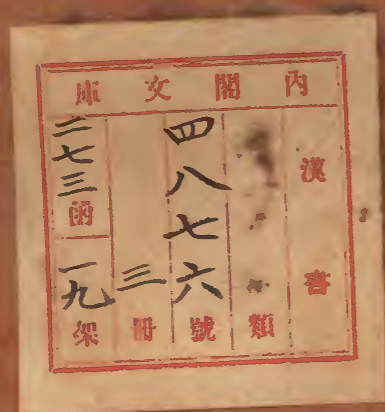 內閣文庫
漢書
類
四八七六號
三冊
二七三函
一九架